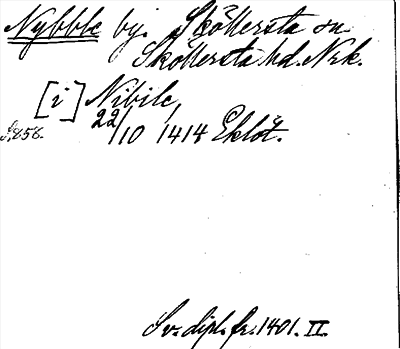 Nybble by. Sköllersta sn.
Sköllersta hd. Nrk.
[i] Nibile,
S. 858. 22/10 1414 Eklöt.
Sv. dipl. fr. 1401. II.